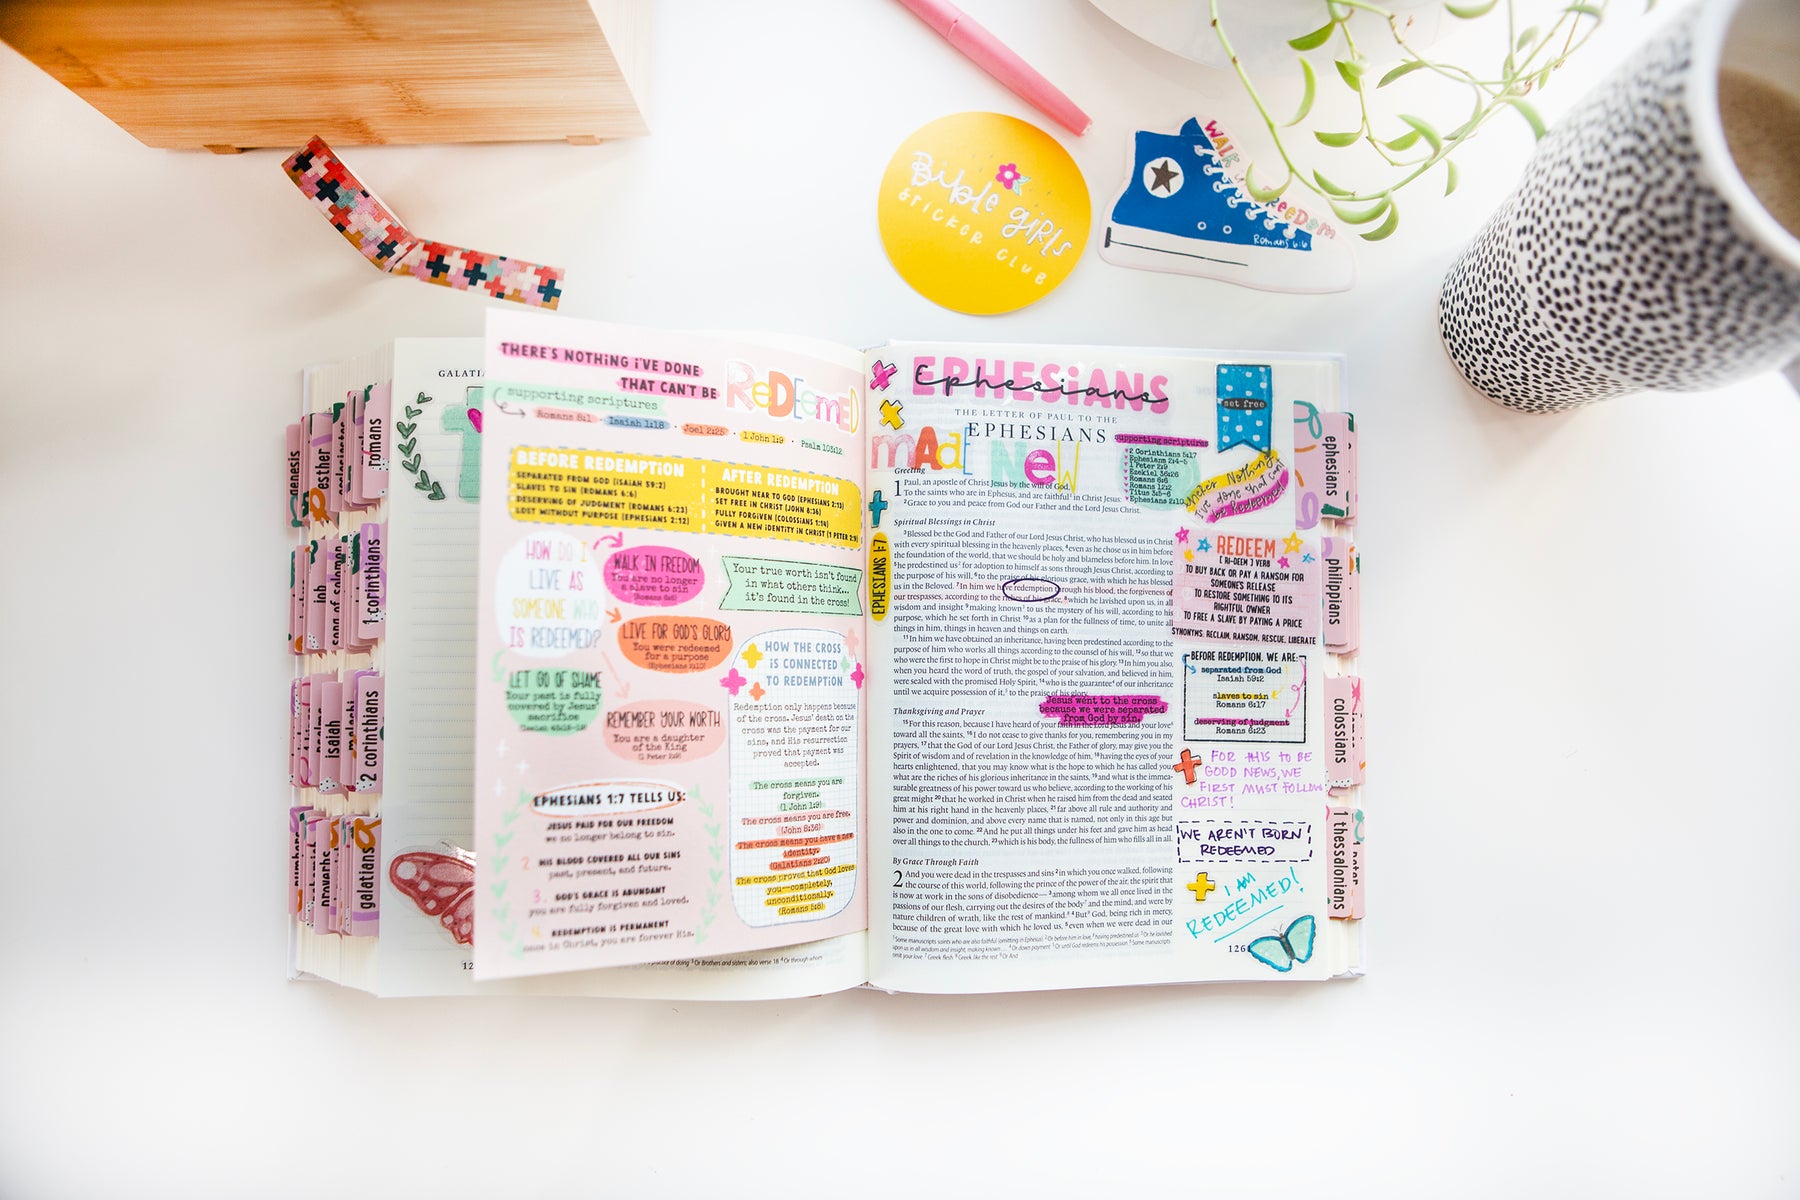 Bible girls
STICKER CLUB
WALK
FREEDOM
Romans 6:6
GALATIA
genesis
esther
romans
job
song of solomon
1 corinthians
isaiah
malachi
2 corinthians
numbers
proverbs
galatians
THERE'S NOTHING I'VE DONE
THAT CAN'T BE
REDEEMED
supporting scriptures
Romans 8:1 · Isaiah 1:18 · Joel 2:25 · 1 John 1:9 · Psalm 103:12
BEFORE REDEMPTION
SEPARATED FROM GOD (ISAIAH 59:2)
SLAVES TO SIN (ROMANS 6:6)
DESERVING OF JUDGMENT (ROMANS 6:23)
LOST WITHOUT PURPOSE (EPHESIANS 2:12)
AFTER REDEMPTION
BROUGHT NEAR TO GOD (EPHESIANS 2:13)
SET FREE IN CHRIST (JOHN 8:36)
FULLY FORGIVEN (COLOSSIANS 1:14)
GIVEN A NEW IDENTITY IN CHRIST (1 PETER 2:9)
HOW DO I
LIVE AS
SOMEONE WHO
IS REDEEMED?
WALK IN FREEDOM
You are no longer
a slave to sin
(Romans 6:6)
LIVE FOR GOD'S GLORY
You were redeemed
for a purpose
(Ephesians 2:10)
LET GO OF SHAME
Your past is fully
covered by Jesus'
sacrifice
REMEMBER YOUR WORTH
You are a daughter
of the King
(1 Peter 2:9)
Your true worth isn't found
in what others think...
it's found in the cross!
HOW THE CROSS
IS CONNECTED
TO REDEMPTION
Redemption only happens because
of the cross. Jesus' death on the
cross was the payment for our
sins, and His resurrection
proved that payment was
accepted.
The cross means you are
forgiven.
(1 John 1:9)
The cross means you are free.
(John 8:36)
The cross means you have a new
identity.
(Galatians 2:20)
The cross proves that God loves
you—completely,
unconditionally.
(Romans 5:8)
EPHESIANS 1:7 TELLS US:
JESUS PAID FOR OUR FREEDOM
we no longer belong to sin.
2. HIS BLOOD COVERED ALL OUR SINS
past, present, and future.
3. GOD'S GRACE IS ABUNDANT
you are fully forgiven and loved.
4. REDEMPTION IS PERMANENT
once in Christ, you are forever His.
12
practice of doing 3 Or Brothers and sisters; also verse 18 4 Or through whom
EPHESIANS
Ephesians
THE LETTER OF PAUL TO THE
EPHESIANS
MADE NEW
new
supporting scriptures
2 Corinthians 5:17
Ephesians 2:4-5
1 Peter 2:9
Ezekiel 36:26
Romans 6:6
Romans 12:2
Titus 3:5-6
Ephesians 2:10
set free
There's Nothing
I've done that can't
be Redeemed!
Greeting
1 Paul, an apostle of Christ Jesus by the will of God,
To the saints who are in Ephesus, and are faithful1 in Christ Jesus:
2 Grace to you and peace from God our Father and the Lord Jesus Christ.
Spiritual Blessings in Christ
3 Blessed be the God and Father of our Lord Jesus Christ, who has blessed us in Christ
with every spiritual blessing in the heavenly places, 4 even as he chose us in him before
the foundation of the world, that we should be holy and blameless before him. In love
5 he predestined us2 for adoption to himself as sons through Jesus Christ, according to
the purpose of his will, 6 to the praise of his glorious grace, with which he has blessed
us in the Beloved. 7 In him we have redemption through his blood, the forgiveness of
our trespasses, according to the riches of his grace, 8 which he lavished upon us, in all
wisdom and insight 9 making known3 to us the mystery of his will, according to his
purpose, which he set forth in Christ 10 as a plan for the fullness of time, to unite all
things in him, things in heaven and things on earth.
11 In him we have obtained an inheritance, having been predestined according to the
purpose of him who works all things according to the counsel of his will, 12 so that we
who were the first to hope in Christ might be to the praise of his glory. 13 In him you also,
when you heard the word of truth, the gospel of your salvation, and believed in him,
were sealed with the promised Holy Spirit, 14 who is the guarantee4 of our inheritance
until we acquire possession of it,5 to the praise of his glory.
Jesus went to the cross
because we were separated
from God by sin.
Thanksgiving and Prayer
15 For this reason, because I have heard of your faith in the Lord Jesus and your love6
toward all the saints, 16 I do not cease to give thanks for you, remembering you in my
prayers, 17 that the God of our Lord Jesus Christ, the Father of glory, may give you the
Spirit of wisdom and of revelation in the knowledge of him, 18 having the eyes of your
hearts enlightened, that you may know what is the hope to which he has called you,
what are the riches of his glorious inheritance in the saints, 19 and what is the immea-
surable greatness of his power toward us who believe, according to the working of his
great might 20 that he worked in Christ when he raised him from the dead and seated
him at his right hand in the heavenly places, 21 far above all rule and authority and
power and dominion, and above every name that is named, not only in this age but
also in the one to come. 22 And he put all things under his feet and gave him as head
over all things to the church, 23 which is his body, the fullness of him who fills all in all.
By Grace Through Faith
2 And you were dead in the trespasses and sins 2 in which you once walked, following
the course of this world, following the prince of the power of the air, the spirit that
is now at work in the sons of disobedience— 3 among whom we all once lived in the
passions of our flesh, carrying out the desires of the body7 and the mind, and were by
nature children of wrath, like the rest of mankind.8 4 But9 God, being rich in mercy,
because of the great love with which he loved us, 5 even when we were dead in our
1 Some manuscripts saints who are also faithful (omitting in Ephesus)
EPHESIANS 1:7
REDEEM
[ RI-DEEM ] VERB
TO BUY BACK OR PAY A RANSOM FOR
SOMEONE'S RELEASE
TO RESTORE SOMETHING TO ITS
RIGHTFUL OWNER
TO FREE A SLAVE BY PAYING A PRICE
SYNONYMS: RECLAIM, RANSOM, RESCUE, LIBERATE
BEFORE REDEMPTION, WE ARE:
separated from God
Isaiah 59:2
slaves to sin
Romans 6:17
deserving of judgment
Romans 6:23
FOR THIS TO BE
GOOD NEWS, WE
FIRST MUST FOLLOW
CHRIST!
WE AREN'T BORN
REDEEMED
I AM
REDEEMED!
126
ephesians
philippians
colossians
1 thessalonians
1 peter